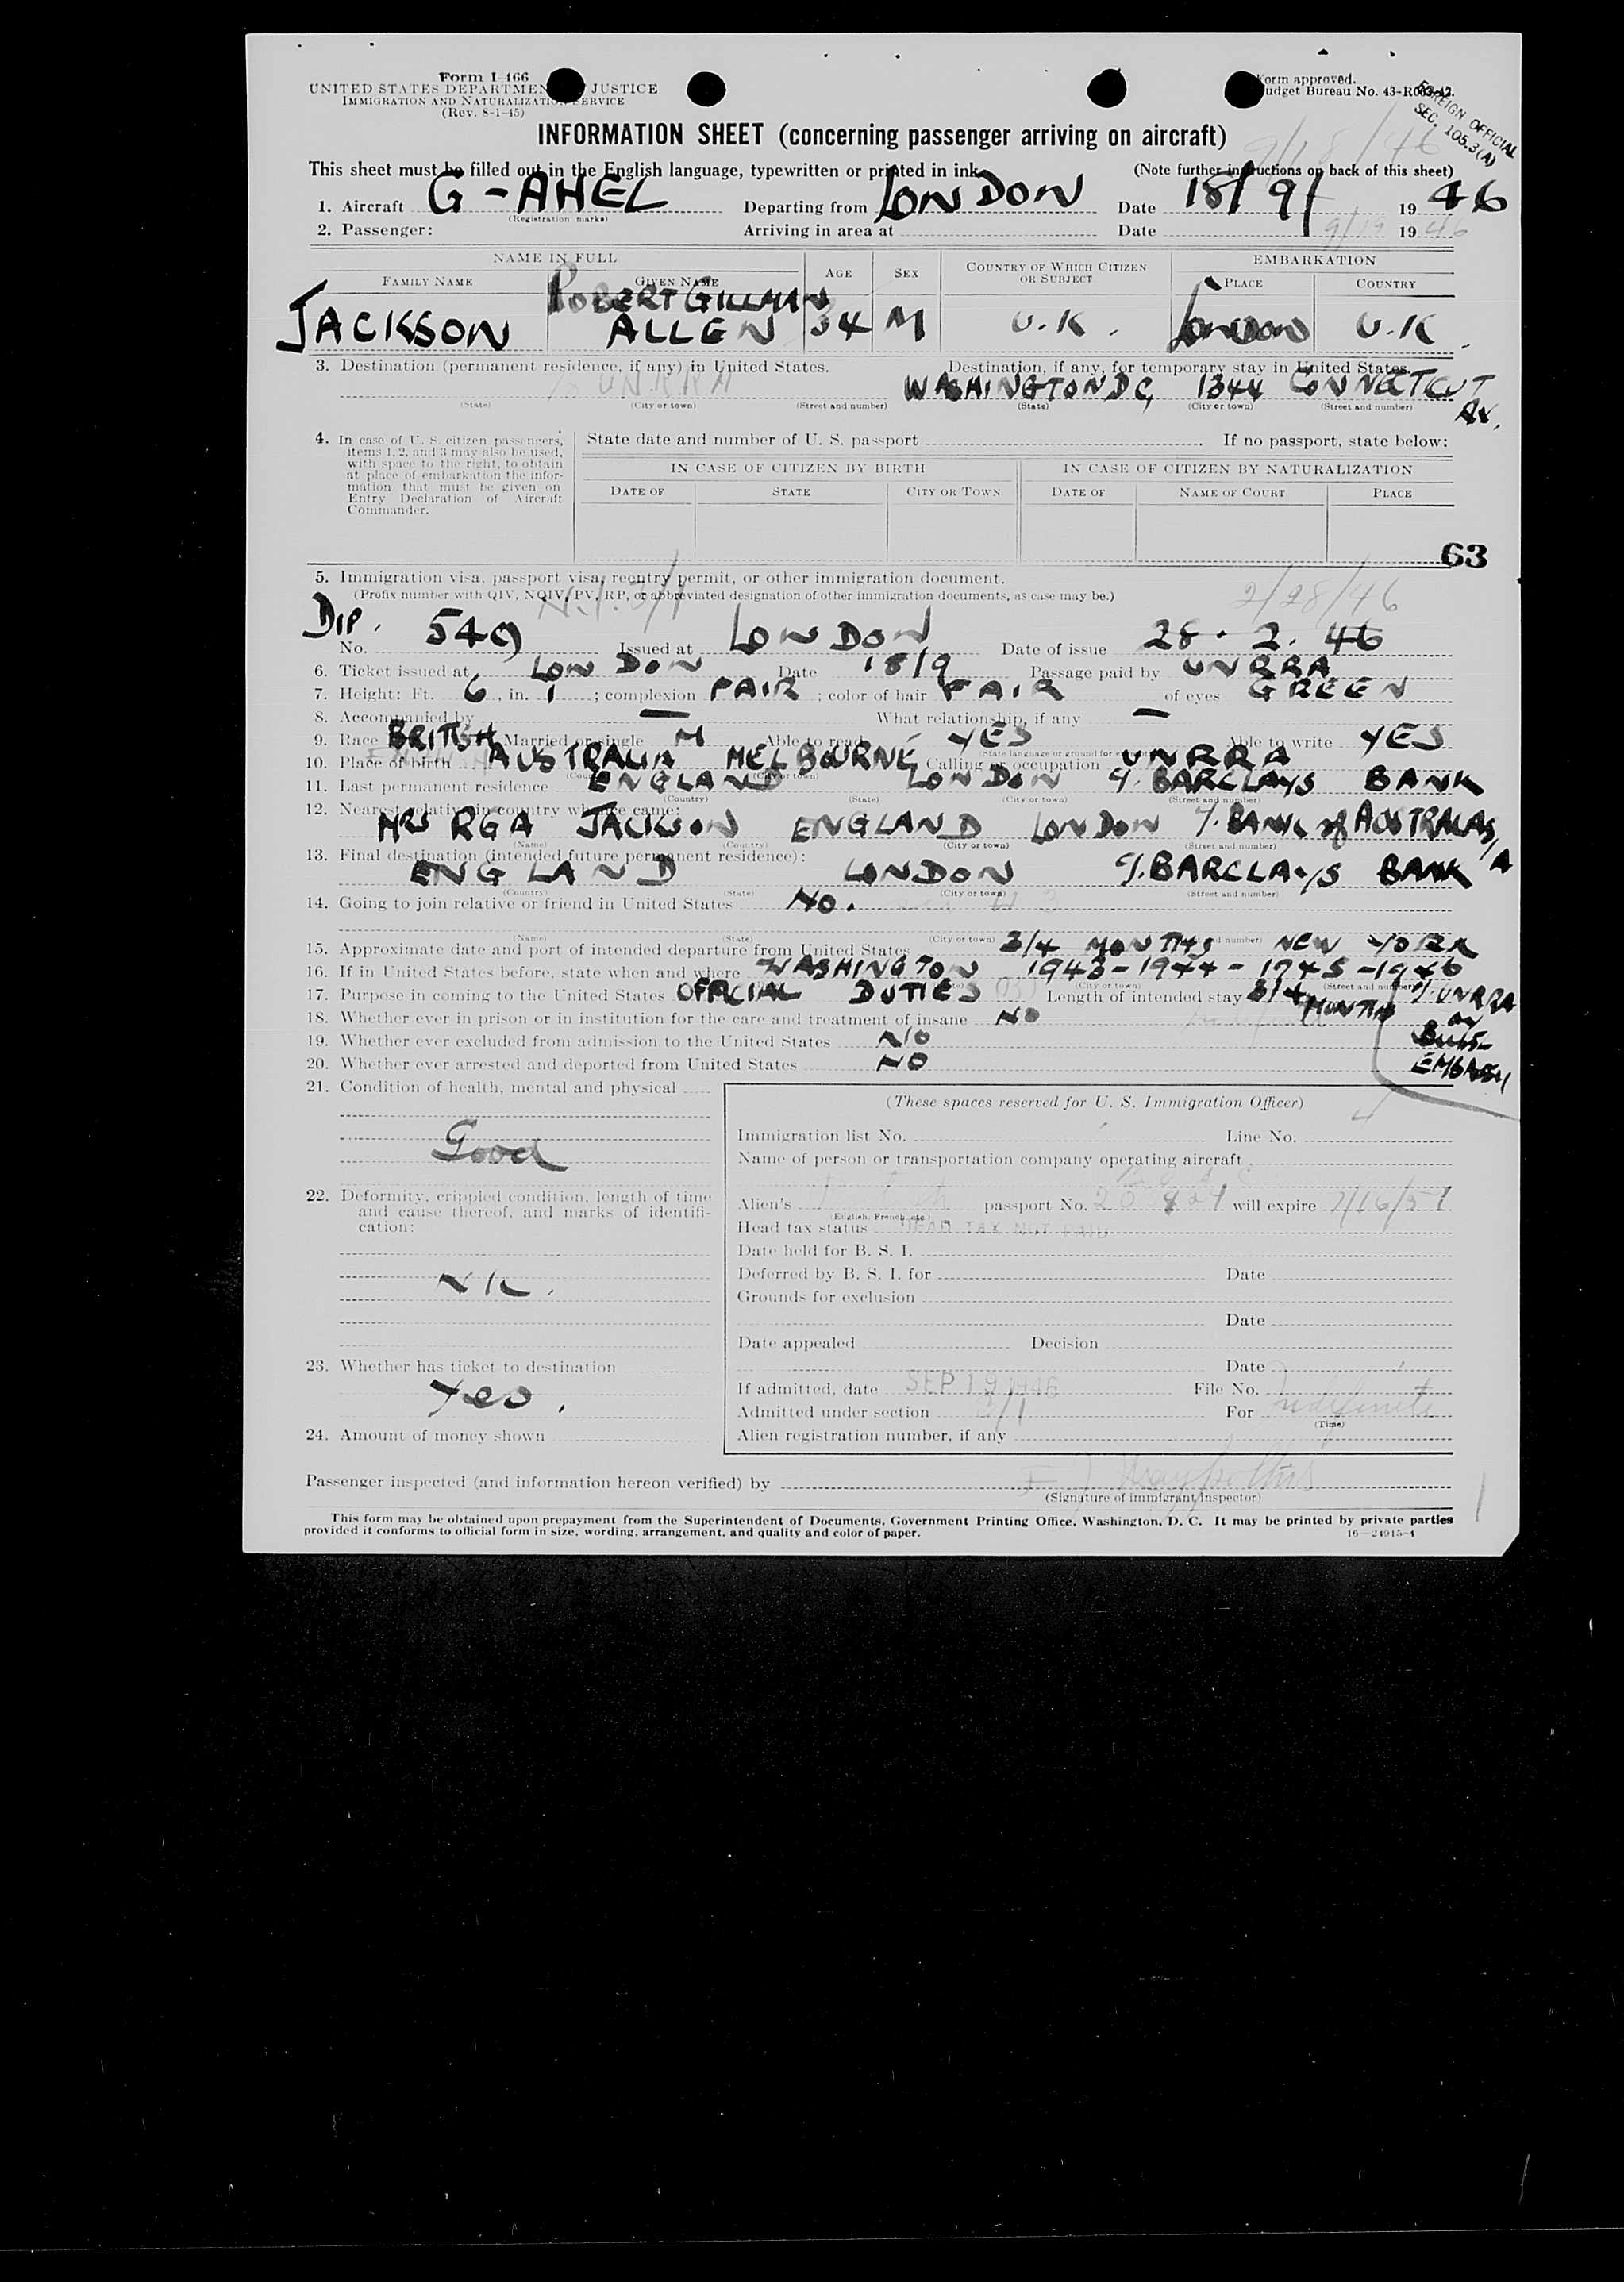 Form I-466
UNITED STATES DEPARTMEN JUSTICE
IMMIGRATION AND NATURALIZATION SERVICE
(Rev. 8-1-45)
Form approved.
Budget Bureau No. 43-R063-42.
FOREIGN OFFICIAL
SEC. 105.3(A)
INFORMATION SHEET (concerning passenger arriving on aircraft)
9/18/46
This sheet must be filled out in the English language, typewritten or printed in ink. (Note further instructions on back of this sheet)
1. Aircraft G-AHEL Departing from LONDON Date 18/9/ 19 46
(Registration marks)
2. Passenger: Arriving in area at Date 9/19 19 46
NAME IN FULL AGE SEX COUNTRY OF WHICH CITIZEN OR SUBJECT EMBARKATION
FAMILY NAME GIVEN NAME PLACE COUNTRY
JACKSON ROBERT GILLMAN ALLEN 34 M U.K. LONDON U.K.
3. Destination (permanent residence, if any) in United States. Destination, if any, for temporary stay in United States.
UNRRA WASHINGTON DC, 1344 CONNECTICUT AV.
(State) (City or town) (Street and number) (State) (City or town) (Street and number)
4. In case of U. S. citizen passengers, items 1, 2, and 3 may also be used, with space to the right, to obtain at place of embarkation the information that must be given on Entry Declaration of Aircraft Commander.
State date and number of U. S. passport If no passport, state below:
IN CASE OF CITIZEN BY BIRTH IN CASE OF CITIZEN BY NATURALIZATION
DATE OF STATE CITY OR TOWN DATE OF NAME OF COURT PLACE
63
5. Immigration visa, passport visa, reentry permit, or other immigration document.
(Prefix number with QIV, NQIV, PV, RP, or abbreviated designation of other immigration documents, as case may be.)
2/28/46
DIP. No. 549 Issued at LONDON Date of issue 28. 2. 46
6. Ticket issued at LONDON Date 18/9 Passage paid by UNRRA
7. Height: Ft. 6, in. 1; complexion FAIR; color of hair FAIR of eyes GREEN
8. Accompanied by — What relationship, if any —
9. Race BRITISH Married or single M Able to read YES Able to write YES
10. Place of birth AUSTRALIA MELBOURNE Calling or occupation UNRRA
11. Last permanent residence ENGLAND LONDON c/. BARCLAYS BANK
(Country) (State) (City or town) (Street and number)
12. Nearest relative in country whence came:
MRS RGA JACKSON ENGLAND LONDON c/. BANK of AUSTRALASIA
(Name) (Country) (City or town) (Street and number)
13. Final destination (intended future permanent residence):
ENGLAND LONDON c/. BARCLAYS BANK
(Country) (State) (City or town) (Street and number)
14. Going to join relative or friend in United States NO.
(Name) (State) (City or town) (Street and number)
15. Approximate date and port of intended departure from United States 3/4 MONTHS NEW YORK
16. If in United States before, state when and where WASHINGTON 1943-1944-1945-1946
17. Purpose in coming to the United States OFFICIAL DUTIES Length of intended stay 3/4 MONTHS
c/. UNRRA
or
EMBASSY
18. Whether ever in prison or in institution for the care and treatment of insane NO
19. Whether ever excluded from admission to the United States NO
20. Whether ever arrested and deported from United States NO
21. Condition of health, mental and physical
Good
22. Deformity, crippled condition, length of time and cause thereof, and marks of identification:
23. Whether has ticket to destination
Yes.
24. Amount of money shown
(These spaces reserved for U. S. Immigration Officer)
Immigration list No. Line No.
Name of person or transportation company operating aircraft
Alien's passport No. will expire
(English, French, etc.)
Head tax status HEAD TAX NOT PAID
Date held for B. S. I.
Deferred by B. S. I. for Date
Grounds for exclusion
Date
Date appealed Decision
Date
If admitted, date SEP 19 1946 File No.
Admitted under section 3/1 For Indefinite
(Time)
Alien registration number, if any
Passenger inspected (and information hereon verified) by
(Signature of immigrant inspector)
This form may be obtained upon prepayment from the Superintendent of Documents, Government Printing Office, Washington, D. C. It may be printed by private parties
provided it conforms to official form in size, wording, arrangement, and quality and color of paper. 16—24915-4